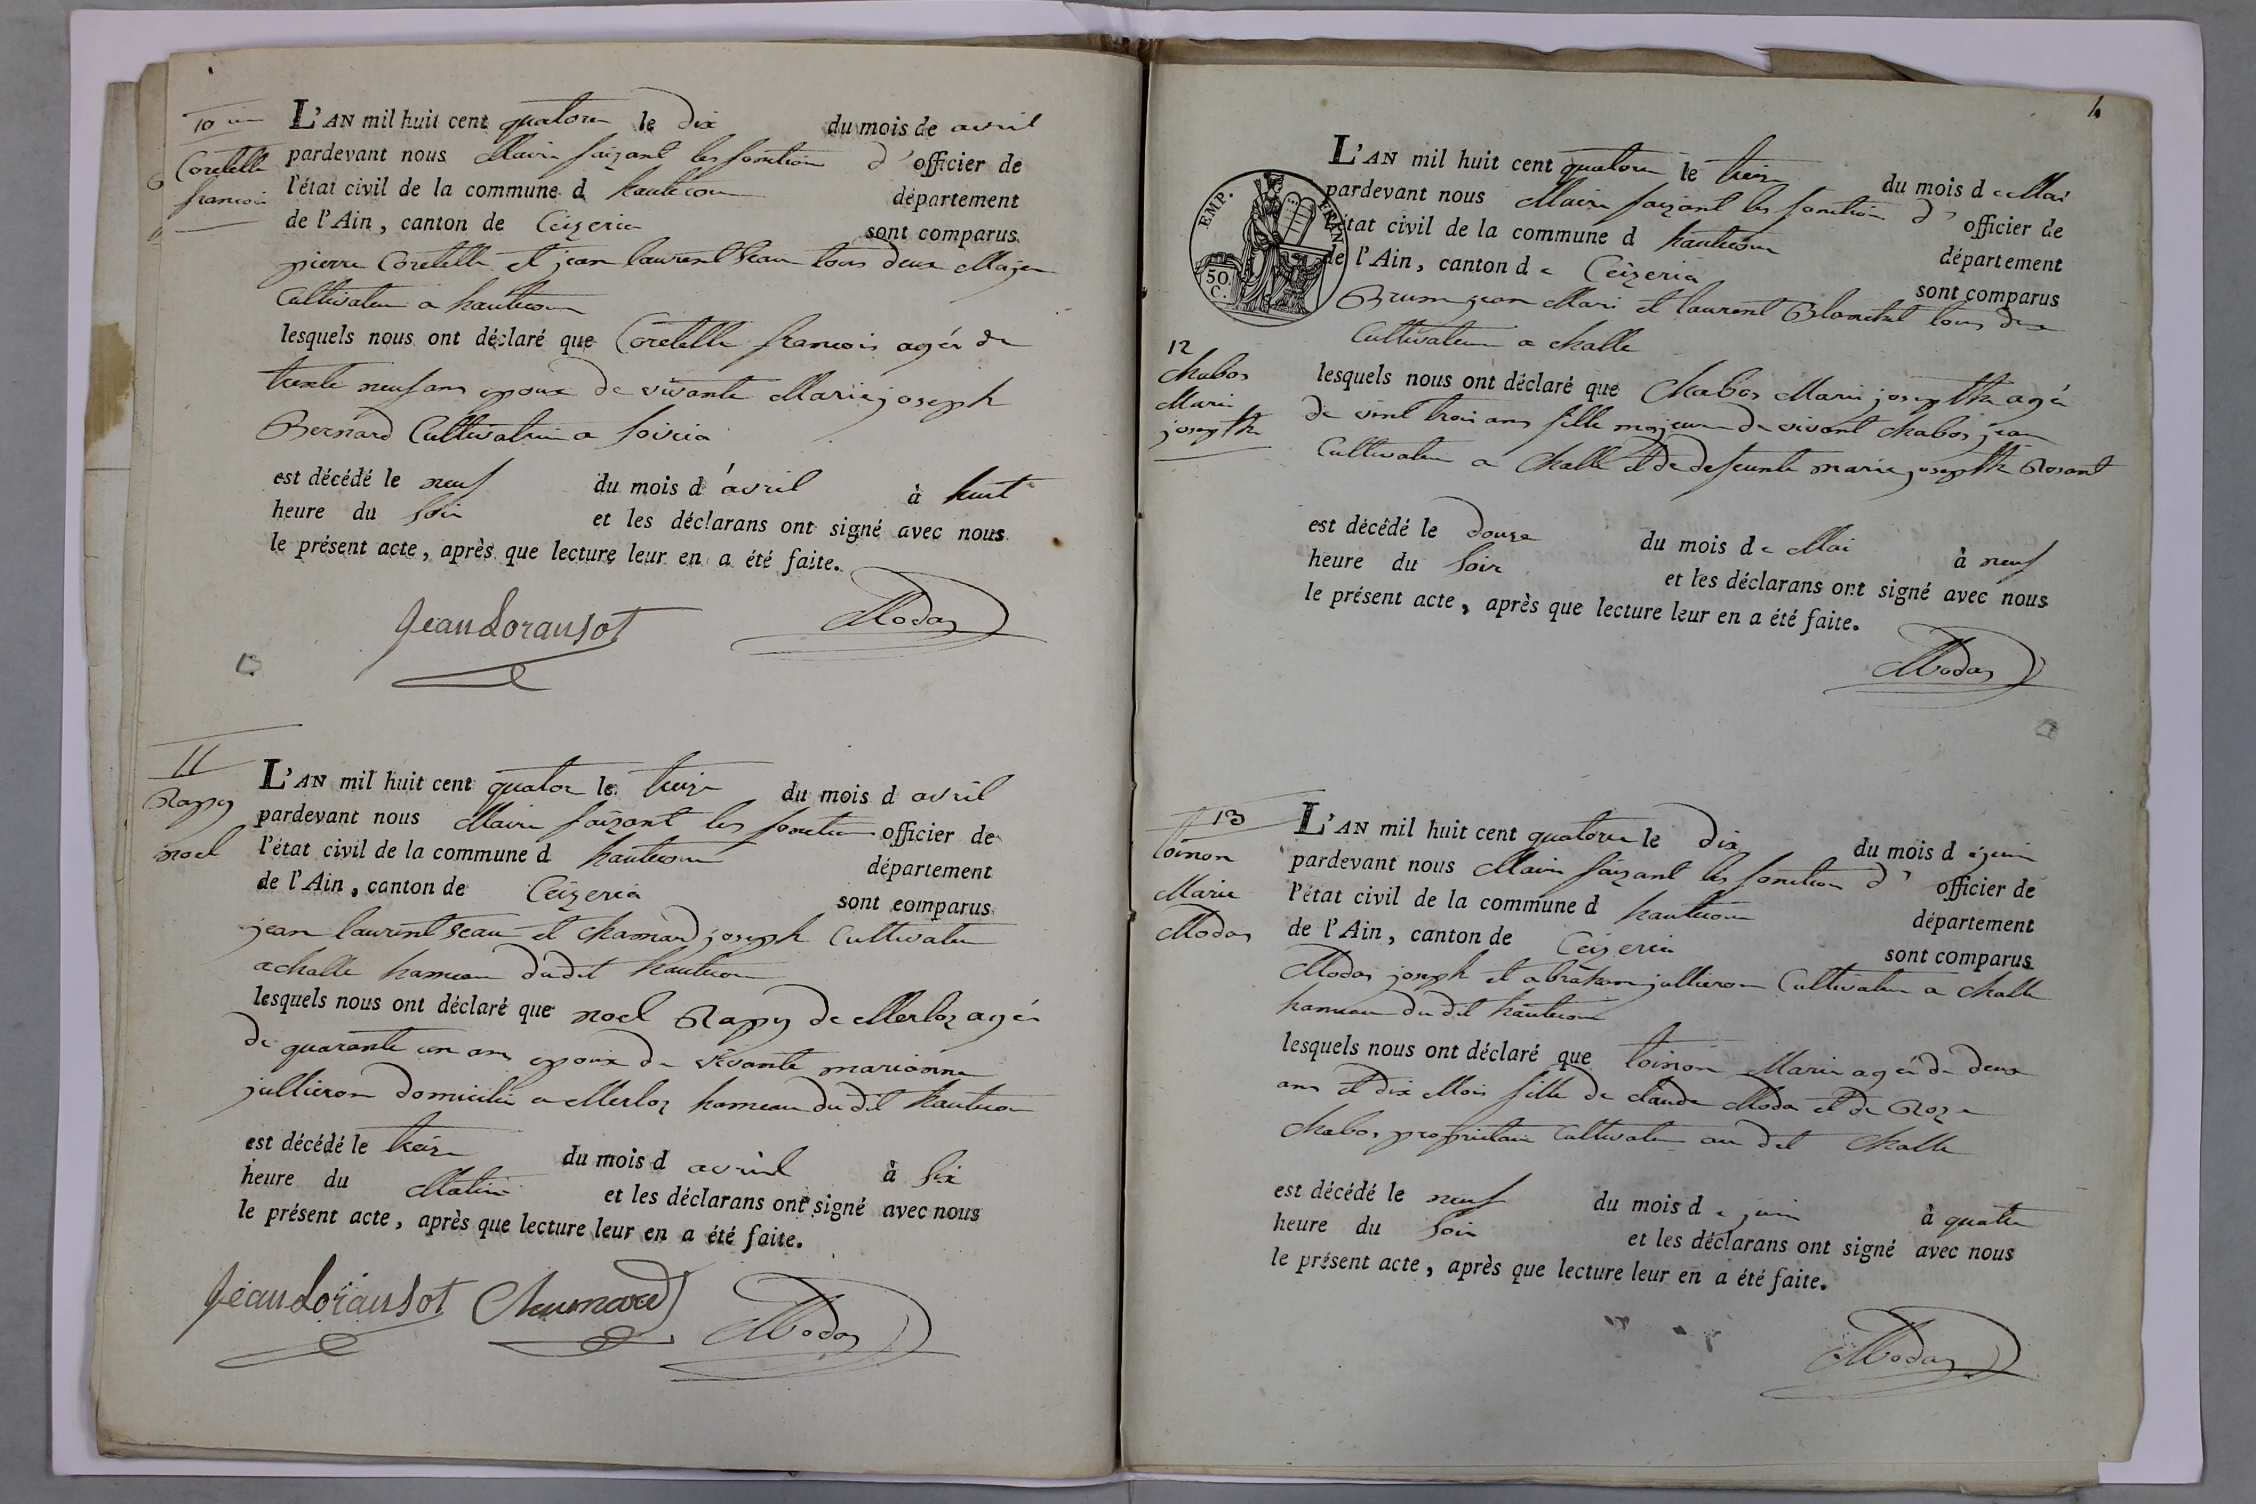 10
Coretelle
francoi
L'AN mil huit cent quatorze le dix du mois de avril
pardevant nous Maire faizant les fonction d' officier de
l'état civil de la commune d hautecour département
de l'Ain, canton de Ceizeria sont comparus
pierre Coretelle et jean laurent seau tous deux Majeur
Cultivateur a hautecour
lesquels nous ont déclaré que Coretelle francois agés de
trente neuf ans epoux de vivante Marie joseph
Bernard Cultivatrice a soiria
est décédé le neuf du mois d'avril à huit
heure du soir et les déclarans ont signé avec nous
le présent acte, après que lecture leur en a été faite.
Jean Loransot Modas
11
Rapy
noel
L'AN mil huit cent quatorze le treize du mois d avril
pardevant nous Maire faizant les fonction officier de
l'état civil de la commune d hautecour département
de l'Ain, canton de Ceizeria sont comparus
jean laurent seau et chamard joseph Cultivateur
a challe hameau dudit hautecour
lesquels nous ont déclaré que noel Rapy de Merloz agés
de quarante un ans epoux de vivante marianne
jullieron domicilié a Merloz hameau du dit hautecour
est décédé le treize du mois d avril à six
heure du Matin et les déclarans ont signé avec nous
le présent acte, après que lecture leur en a été faite.
Jean Loransot Chamard Modas
4
EMP. FRAN
50.
C.
L'AN mil huit cent quatorze le treize du mois de Mai
pardevant nous Maire faizant les fonction d' officier de
l'état civil de la commune d hautecour département
de l'Ain, canton de Ceizeria sont comparus
Brun jean Mari et laurent Blanchet tous deux
Cultivateur a challe
12
chabos
Marie
josepthe
lesquels nous ont déclaré que chabos Marie josepthe agé
de vint trois ans fille majeure de vivant chabos jean
Cultivateur a challe et de defeunte marie josepthe Rosant
est décédé le douze du mois de Mai à neuf
heure du soir et les déclarans ont signé avec nous
le présent acte, après que lecture leur en a été faite.
Modas
13
toinon
Marie
Modas
L'AN mil huit cent quatorze le dix du mois d juin
pardevant nous Maire faizant les fonction d' officier de
l'état civil de la commune d hautecour département
de l'Ain, canton de Ceizeria sont comparus
Modas joseph et abraham jullieron Cultivateur a challe
hameau du dit hautecour
lesquels nous ont déclaré que toinon Marie agé de deux
ans et dix Mois fille de claude Modas et de Roze
chabos proprietaire Cultivateur au dit challe
est décédé le neuf du mois de juin à quatre
heure du soir et les déclarans ont signé avec nous
le présent acte, après que lecture leur en a été faite.
Modas